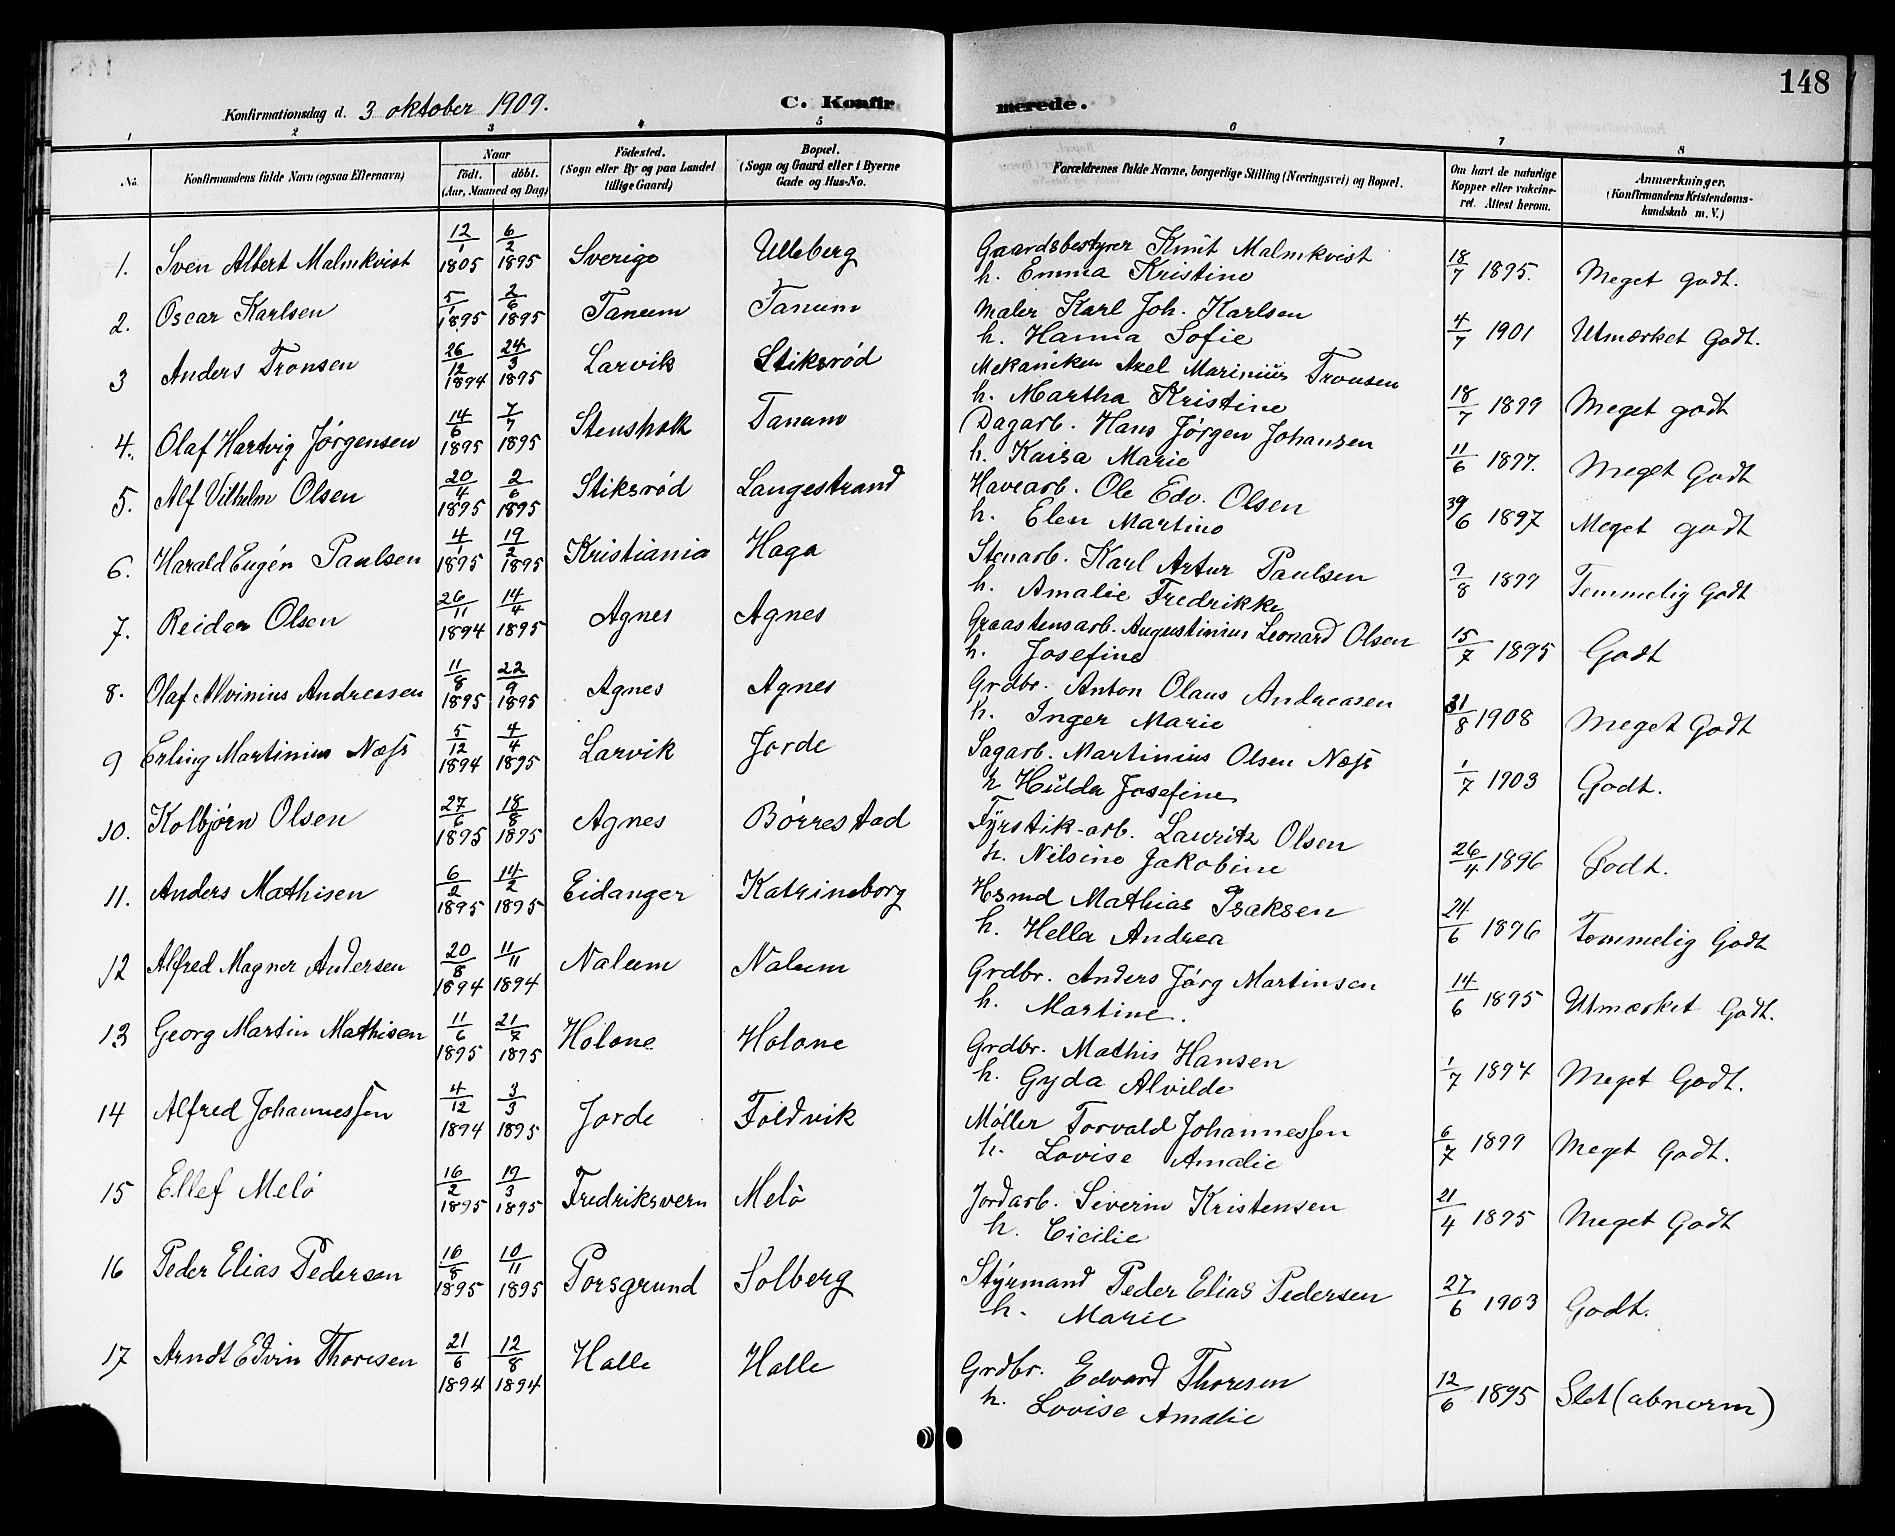 148
Konfirmationsdag d. 3 oktober 1909. C. Konfirmerede.
1 2 3 4 5 6 7 8
No. Konfirmandens fulde Navn (ogsaa Efternavn) Naar født. døbt. (Aar, Maaned og Dag) Fødested. (Sogn eller By og paa Landet tillige Gaard) Bopæl. (Sogn og Gaard eller i Byerne Gade og Hus-No. Forældrenes fulde Navne, borgerlige Stilling (Næringsvei) og Bopæl. Om havt de naturlige Kopper eller vakcineret. Attest herom. Anmærkninger. (Konfirmandens Kristendomskundskab m. V.)
1. Sven Albert Malmkvist 12/1 1805 6/2 1895 Sverige Ulleberg Gaardsbestyrer Knut Malmkvist 18/7 1895. Meget godt.
h. Emma Kristine
2. Oscar Karlsen 5/1 1895 2/6 1895 Tanum Tanum Maler Karl Joh. Karlsen 4/7 1901 Utmærket Godt.
h. Hanna Sofie
3 Anders Tronsen 26/12 1894 24/3 1895 Larvik Stiksrød Mekaniker Axel Marinius Tronsen 18/7 1899 Meget godt
h. Martha Kristine
4. Olaf Hartvig Jørgensen 14/6 1895 7/7 1895 Stensholt Tanum Dagarb. Hans Jørgen Johansen 11/6 1897. Meget Godt
h. Kaisa Marie
5. Alf Vilhelm Olsen 20/4 1895 2/6 1895 Stiksrød Langestrand Havearb. Ole Edv. Olsen /6 1897 Meget godt
h. Elen Martine
6. Harald Eugén Paulsen 4/1 1895 19/2 1895 Kristiania Haga Stenarb. Karl Artur Paulsen 9/8 1899 Temmelig Godt
h. Amalie Fredrikke
7. Reidar Olsen 26/11 1894 14/4 1895 Agnes Agnes Graastensarb. Augustinius Leonard Olsen 15/7 1895 Godt
h. Josefine
8. Olaf Alvinius Andreasen 11/8 1895 22/9 1895 Agnes Agnes Grdbr. Anton Olaus Andreasen 31/8 1908 Meget Godt
h. Inger Marie
9 Erling Martinius Næss 5/12 1894 4/4 1895 Larvik Jorde Sagarb. Martinius Olsen Næss 1/7 1903 Godt.
h Hulda Josefine
10. Kolbjørn Olsen 27/6 1895 18/8 1895 Agnes Børrestad Fyrstik-arb. Lauritz Olsen 26/4 1896 Godt.
h. Nilsine Jakobine
11. Anders Mathisen 6/2 1895 14/2 1895 Eidanger Katrineborg Hsmd Mathias Isaksen 24/6 1896 Temmelig Godt
h. Hella Andrea
12 Alfred Magner Andersen 20/8 1894 11/11 1894 Nalum Nalum Grdbr. Anders Jørg Martinsen 14/6 1895 Utmærket Godt.
h. Martine.
13 Georg Martin Mathisen 11/6 1895 21/7 1895 Holone Holone Grdbr. Mathis Hansen 1/7 1894 Meget Godt.
h. Gyda Alvilde
14 Alfred Johannessen 4/12 1894 3/3 1895 Jorde Foldvik Møller Torvald Johannessen 6/7 1899 Meget Godt.
h. Lovise Amalie
15 Ellef Melø 16/2 1895 19/3 1895 Fredriksvern Melø Jordarb. Siverin Kristensen 21/4 1895 Meget Godt
h. Cicilie
16 Peder Elias Pedersen 16/8 1895 10/11 1895 Porsgrund Solberg Styrmand Peder Elias Pedersen 27/6 1903 Godt.
h. Marie
17 Arndt Edvin Thoresen 21/6 1894 12/8 1894 Halle Halle Grdbr. Edvard Thoresen 12/6 1895 Slet (abnorm)
h. Lovise Amalie